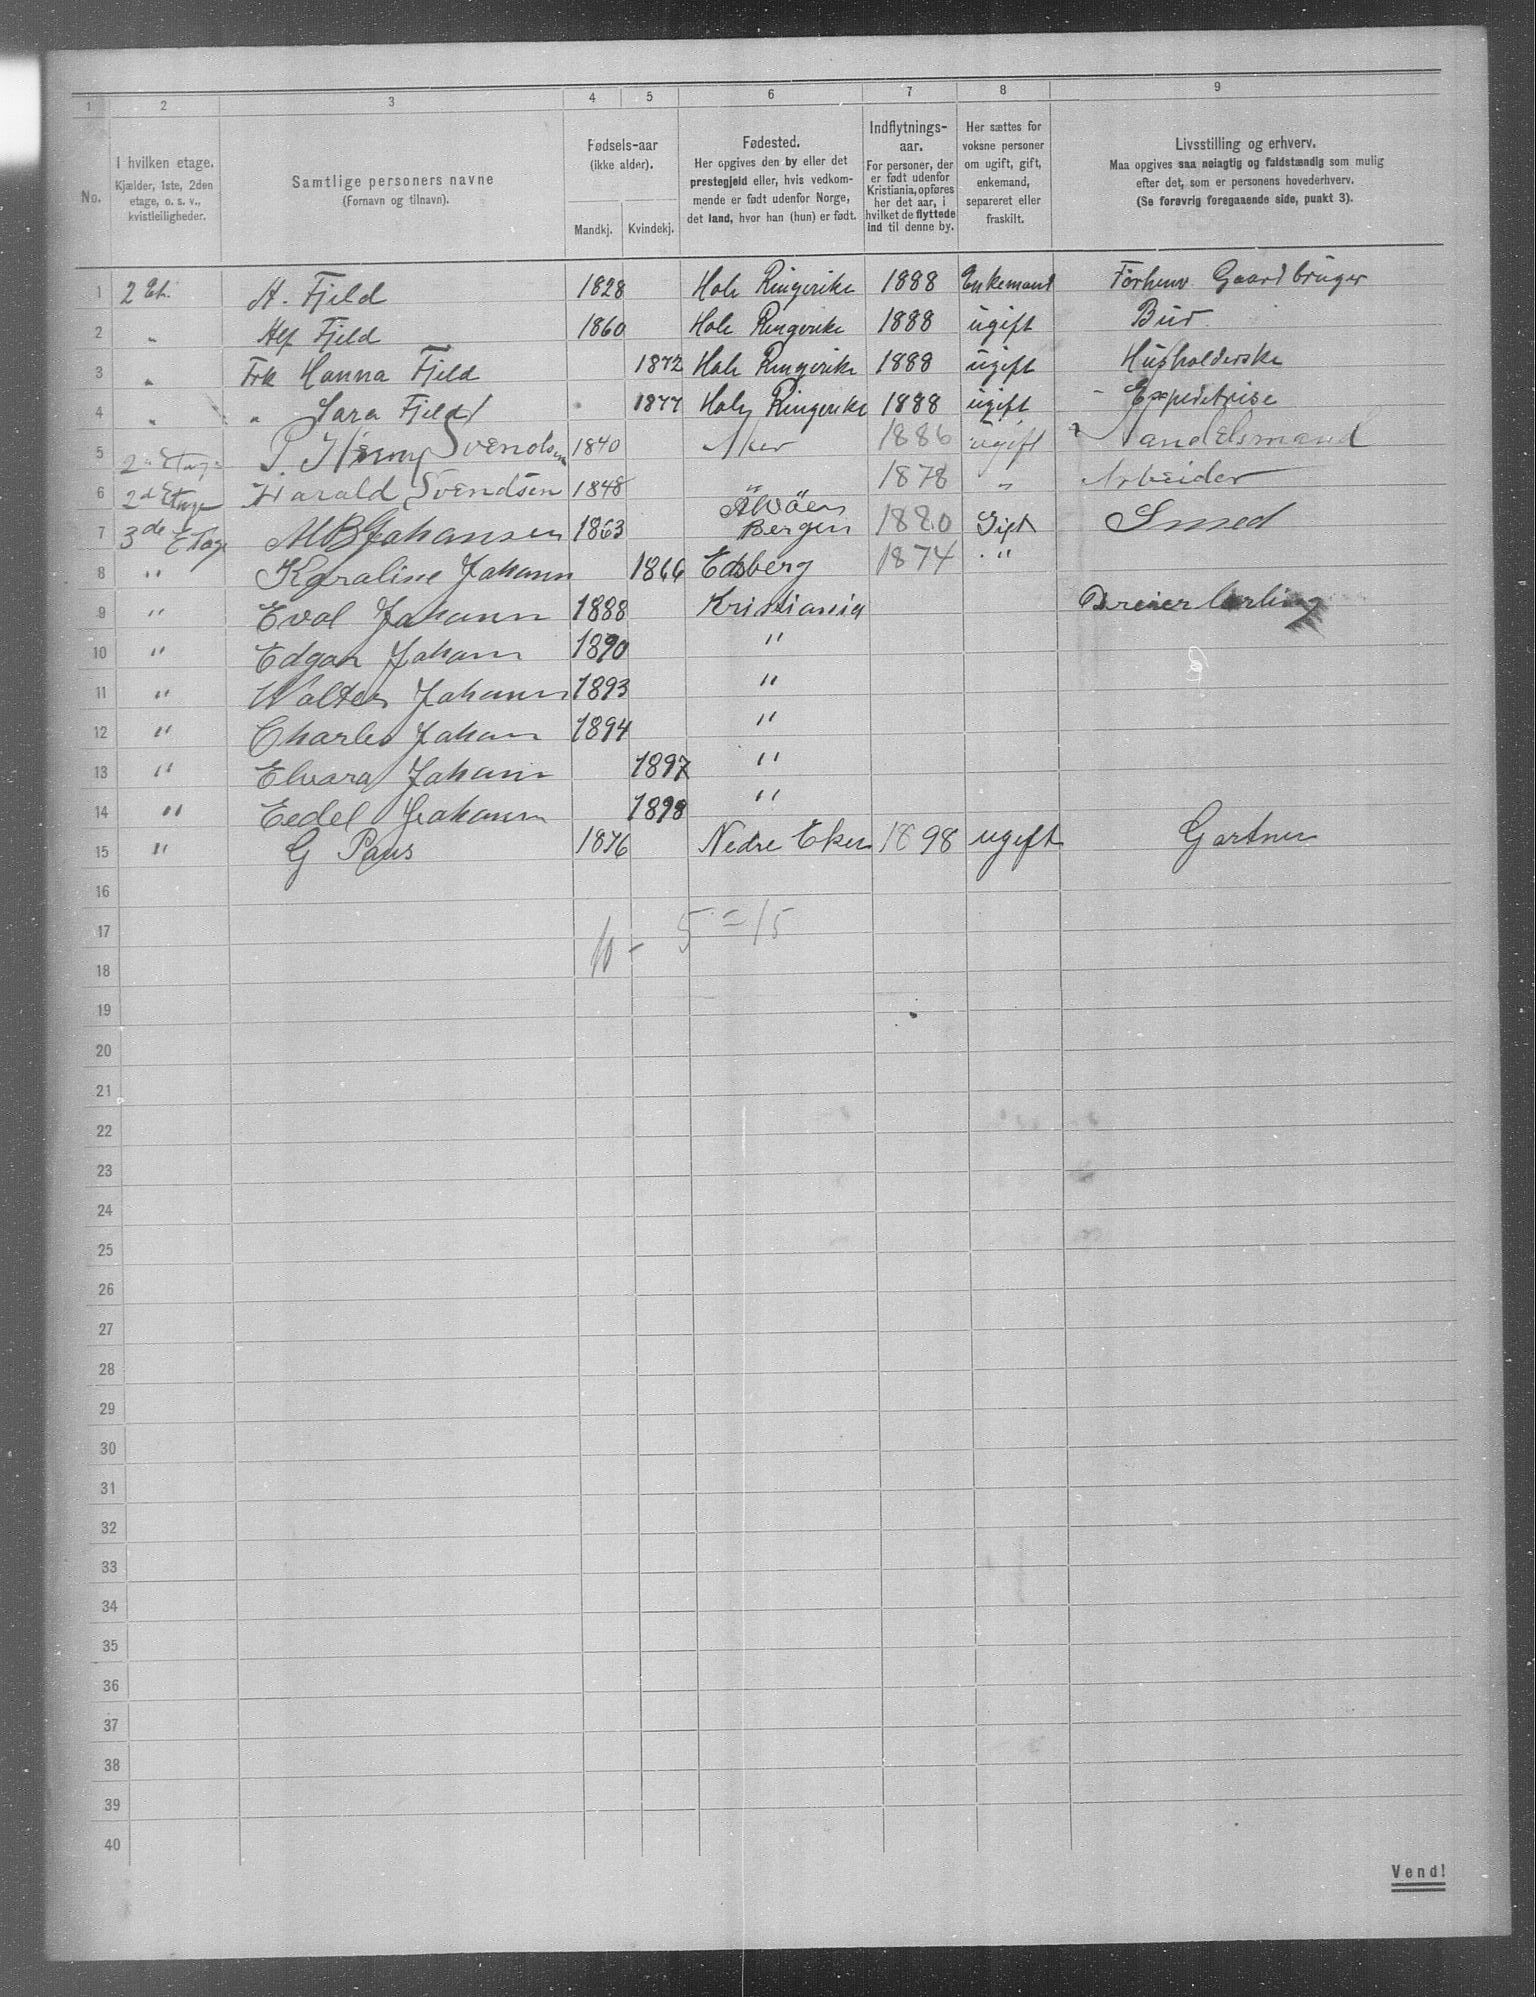 1 2 3 4 5 6 7 8 9
No.
I hvilken etage.
Kjælder, 1ste, 2den
etage, o. s. v.,
kvistleiligheder.
Samtlige personers navne
(Fornavn og tilnavn).
Fødsels-aar
(ikke alder).
Mandkj. Kvindekj.
Fødested.
Her opgives den by eller det
prestegjeld eller, hvis vedkom-
mende er født udenfor Norge,
det land, hvor han (hun) er født.
Indflytnings-
aar.
For personer, der
er født udenfor
Kristiania, opføres
her det aar, i
hvilket de flyttede
ind til denne by.
Her sættes for
voksne personer
om ugift, gift,
enkemand,
separeret eller
fraskilt.
Livsstilling og erhverv.
Maa opgives saa nøiagtig og fuldstændig som mulig
efter det, som er personens hovederhverv.
(Se forøvrig foregaaende side, punkt 3).
1 2 Et. A. Fjeld 1828 Hole Ringerike 1888 Enkemand Forhenv Gaardbruger
2 " Alf Fjeld 1860 Hole Ringerike 1888 ugift Bud
3 " Frk Hanna Fjeld 1872 Hole Ringerike 1888 ugift Husholderske
4 " " Sara Fjeld 1877 Hole Ringerike 1888 ugift Expeditrise
5 2n Etage P. Henry Svendsen 1840 Aker 1886 ugift Handelsmand
6 2d Etage Harald Svendsen 1848 " 1878 " Arbeider
7 3de Etage M B Johansen 1863 Bergen 1880 Gift Smed
8 " Karoline Johann 1866 Edsberg 1874 "
9 " Eval Johann 1888 Kristiania Dreier lærling
10 " Edgar Johann 1890 "
11 " Walter Johann 1893 "
12 " Charles Johann 1894 "
13 " Elvara Johann 1897 "
14 " Eedel Johann 1898 "
15 " G Paus 1876 Nedre Eker 1898 ugift Gartner
16
17 10 - 5 = 15
18
19
20
21
22
23
24
25
26
27
28
29
30
31
32
33
34
35
36
37
38
39
40
Vend!